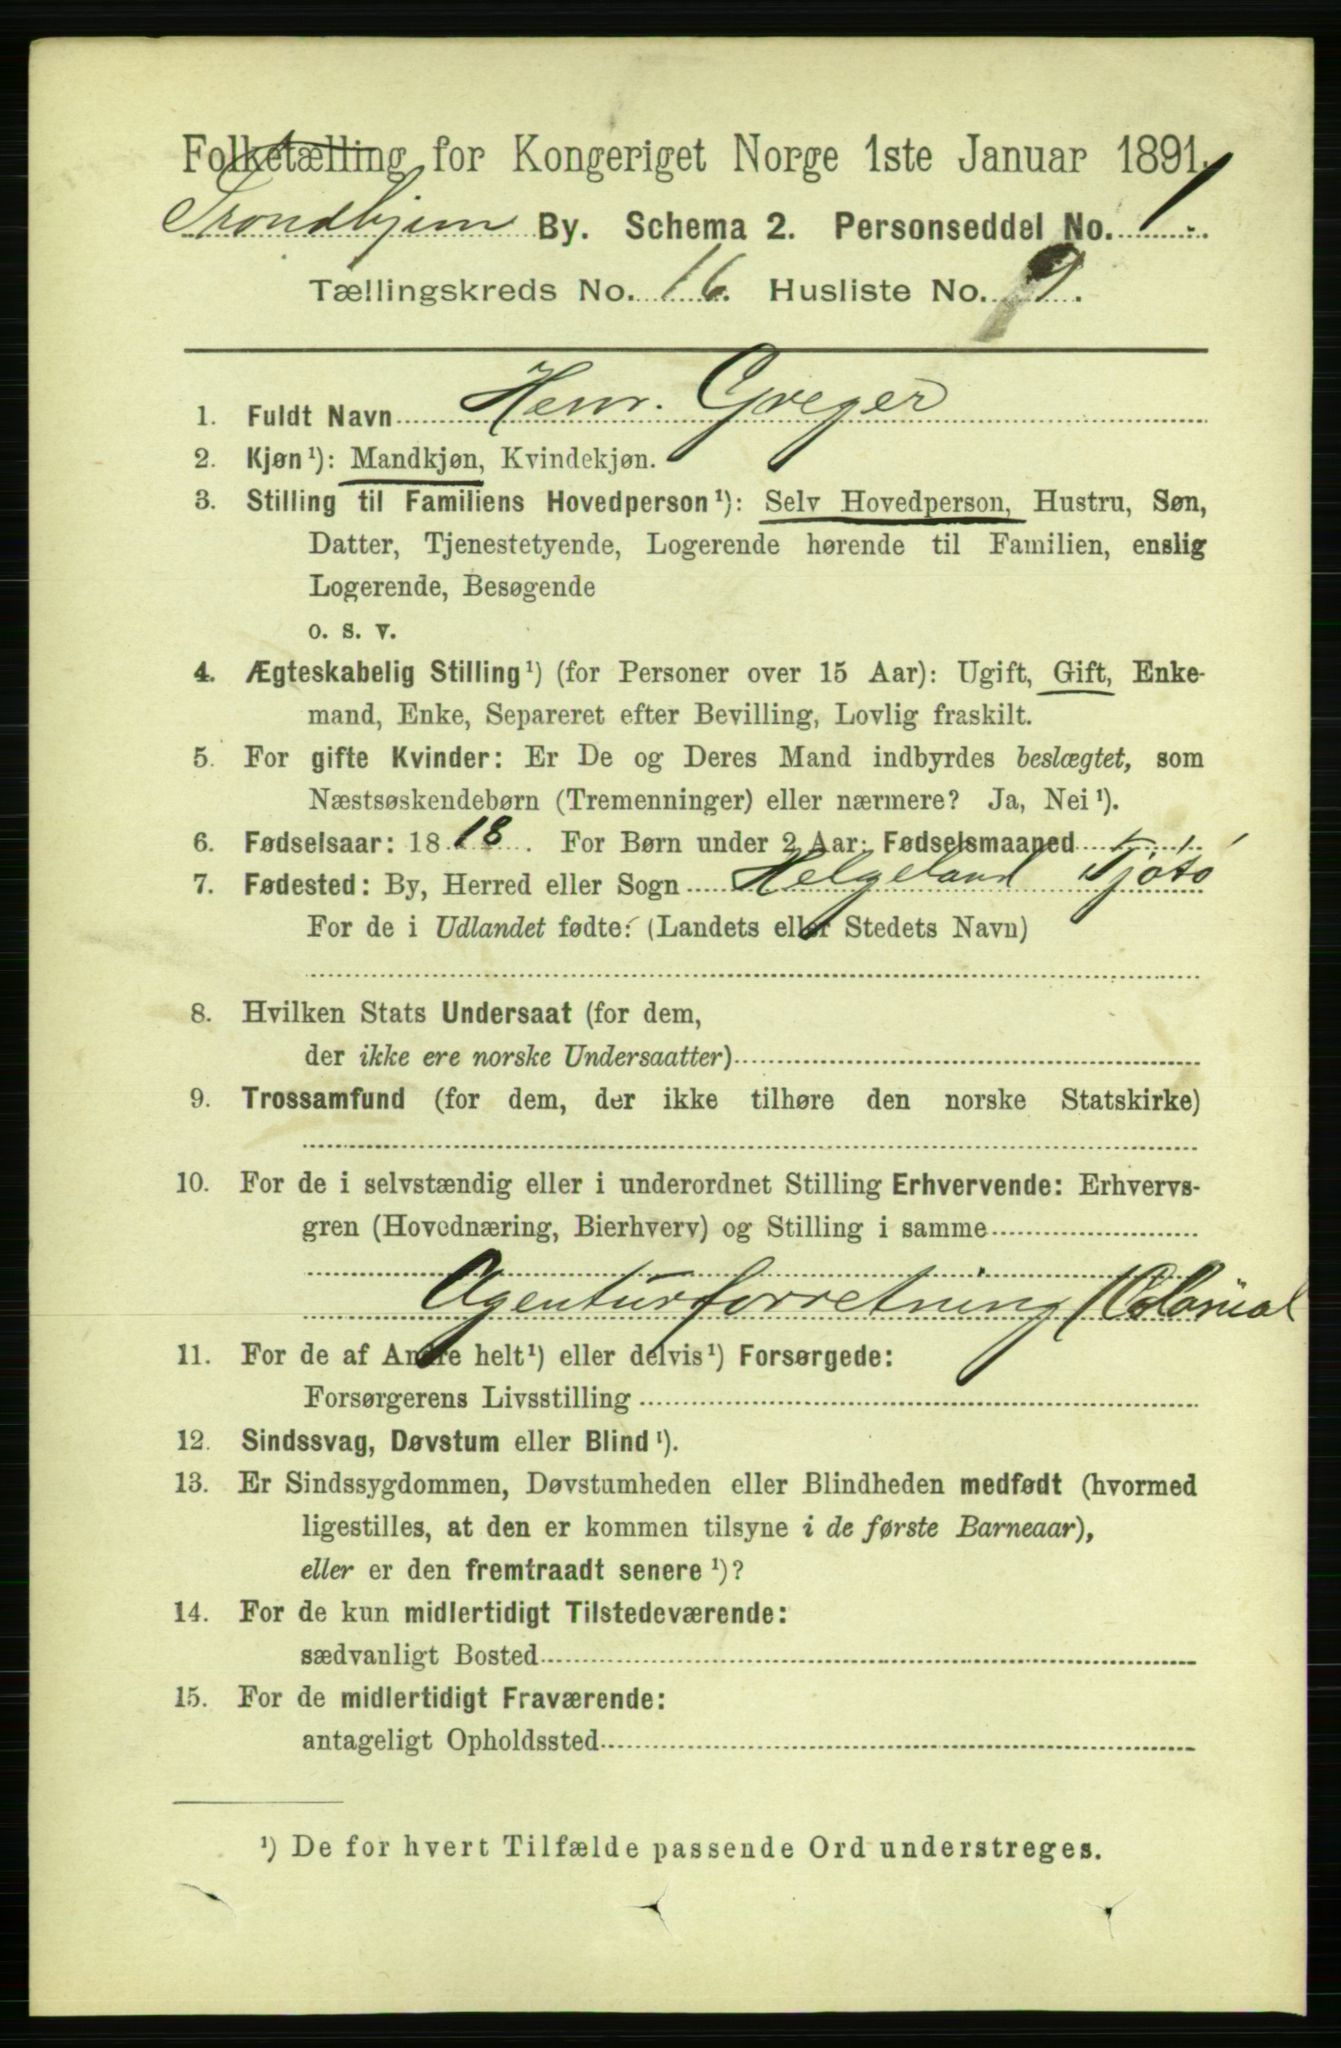 Folketælling for Kongeriget Norge 1ste Januar 1891.
Trondhjem By. Schema 2. Personseddel No. 1.
Tællingskreds No. 16. Husliste No. 9.
1. Fuldt Navn Henr. Greger
2. Kjøn¹): Mandkjøn, Kvindekjøn.
3. Stilling til Familiens Hovedperson¹): Selv Hovedperson, Hustru, Søn,
Datter, Tjenestetyende, Logerende hørende til Familien, enslig
Logerende, Besøgende
o. s. v.
4. Ægteskabelig Stilling¹) (for Personer over 15 Aar): Ugift, Gift, Enke-
mand, Enke, Separeret efter Bevilling, Lovlig fraskilt.
5. For gifte Kvinder: Er De og Deres Mand indbyrdes beslægtet, som
Næstsøskendebørn (Tremenninger) eller nærmere? Ja, Nei¹).
6. Fødselsaar: 1818. For Børn under 2 Aar: Fødselsmaaned
7. Fødested: By, Herred eller Sogn Helgeland Tjøtø
For de i Udlandet fødte: (Landets eller Stedets Navn)
8. Hvilken Stats Undersaat (for dem,
der ikke ere norske Undersaatter)
9. Trossamfund (for dem, der ikke tilhøre den norske Statskirke)
10. For de i selvstændig eller i underordnet Stilling Erhvervende: Erhvervs-
gren (Hovednæring, Bierhverv) og Stilling i samme
Agenturforretning / Colonial
11. For de af Andre helt¹) eller delvis¹) Forsørgede:
Forsørgerens Livsstilling
12. Sindssvag, Døvstum eller Blind¹).
13. Er Sindssygdommen, Døvstumheden eller Blindheden medfødt (hvormed
ligestilles, at den er kommen tilsyne i de første Barneaar),
eller er den fremtraadt senere¹)?
14. For de kun midlertidigt Tilstedeværende:
sædvanligt Bosted
15. For de midlertidigt Fraværende:
antageligt Opholdssted
¹) De for hvert Tilfælde passende Ord understreges.